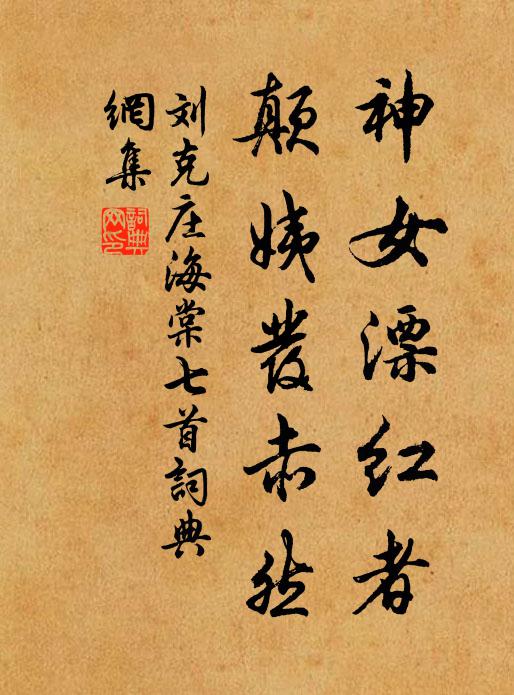 神女漂红者
颠姨发赤然
刘克庄海棠七首詞典
網集
詞典網印